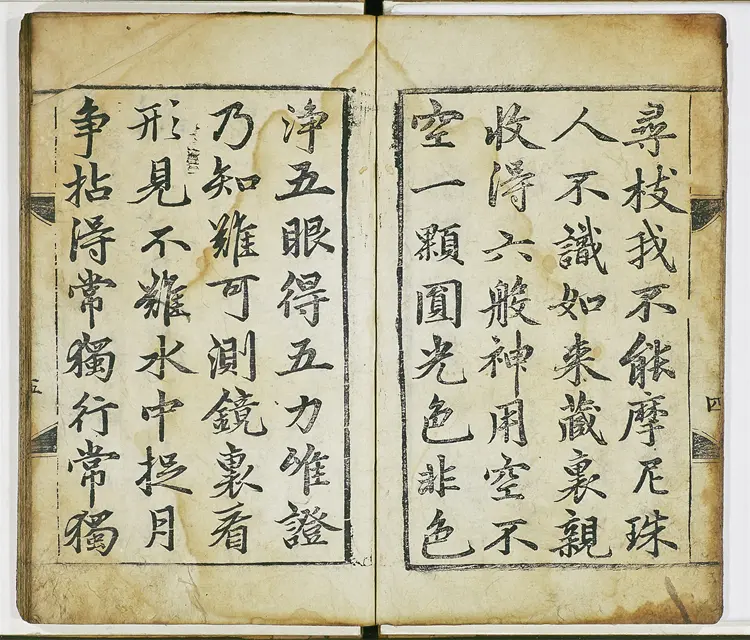 尋枝我不能摩尼珠
人不識如来藏裏親
收得六般神用空不
空一顆圓光色非色
四
淨五眼得五力唯證
乃知難可測鏡裏看
形見不難水中捉月
争拈得常獨行常獨
五